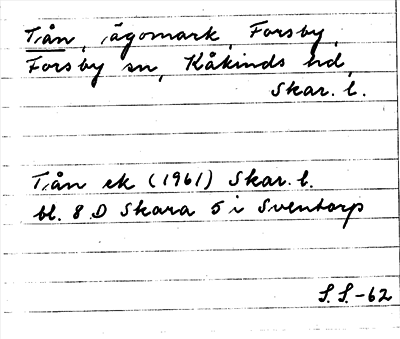 Tiån, ägomark, Forsby,
Forsby sn, Kåkinds hd,
Skar. l.
Tiån ek (1961) Skar. l.
bl. 8 D Skara 5 i Sventorp
S.S.-62